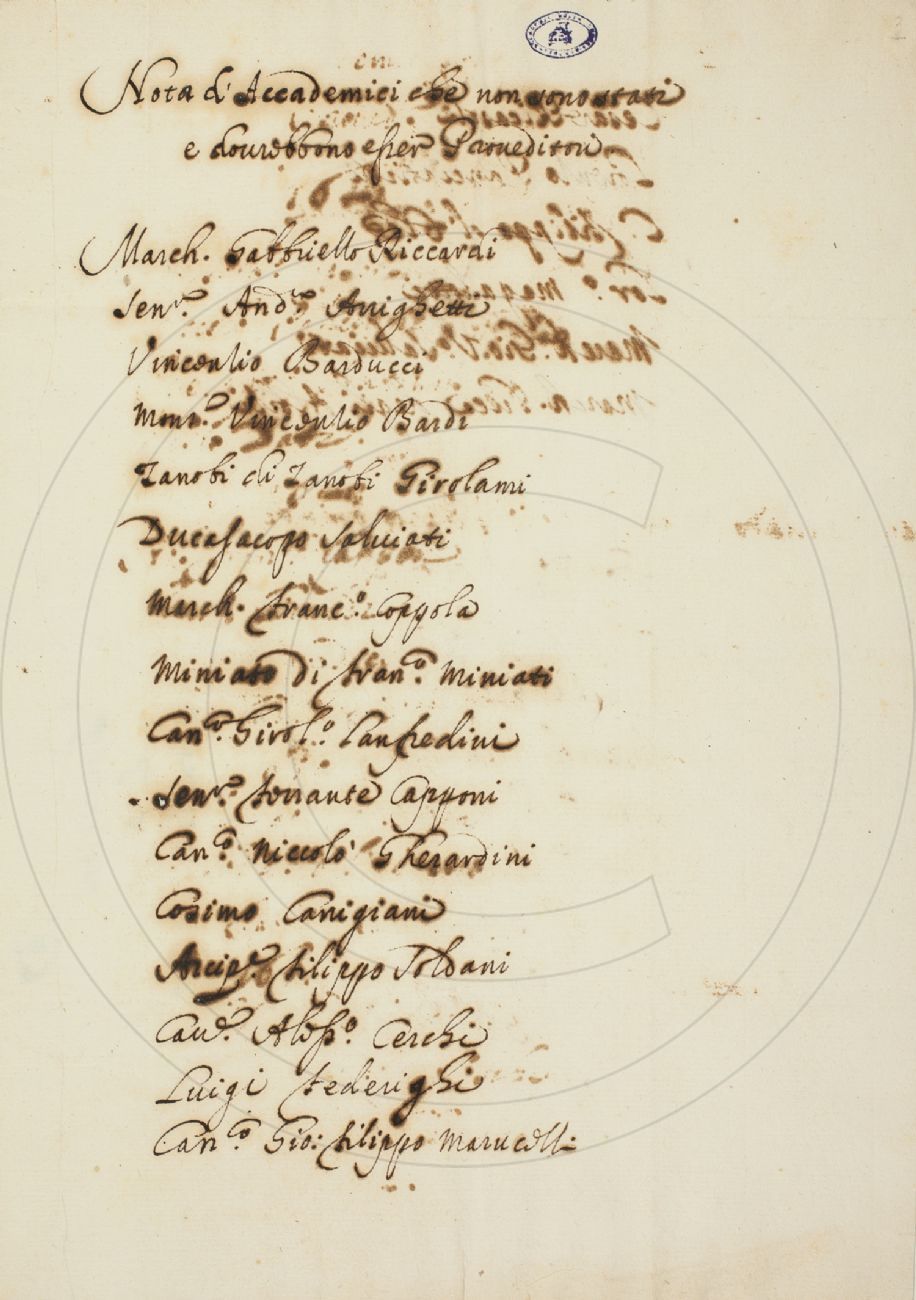 Nota d'Accademici che non sono stati
e dourebbono esser Proueditori
March. Gabbriello Riccardi
Senr.e And.a Arrighetti
Vincenzio Barducci
Monr.e Vincenzio Bardi
Zanobi di Zanobi Girolami
Duca Jacopo Salviati
March. Franc.o Coppola
Miniato di Fran.o Miniati
Can.o Girol.o Lanfredini
Senr.e Ferrante Capponi
Can.o Niccolò Gherardini
Cosimo Canigiani
Arcip.e Filippo Soldani
Cau.e Aless.o Cerchi
Luigi Federighi
Can.o Gio: Filippo Marucelli